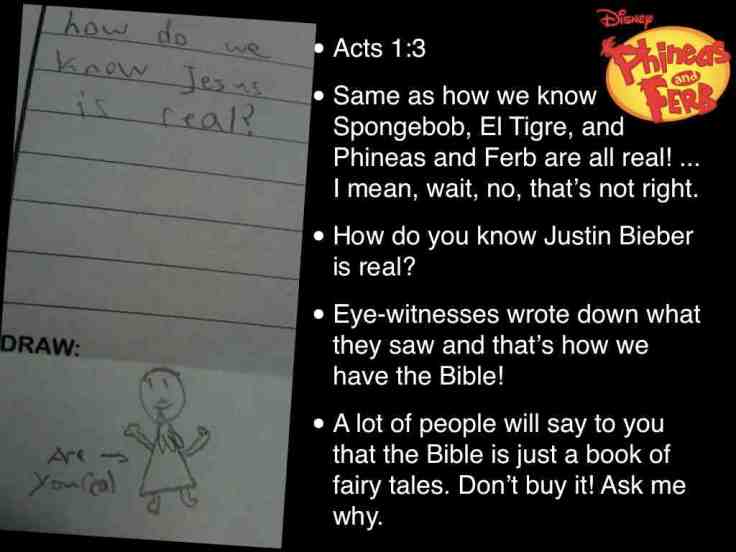 how do we
know Jesus
is real?
DRAW:
Are
you real
• Acts 1:3
• Same as how we know
Spongebob, El Tigre, and
Phineas and Ferb are all real! ...
I mean, wait, no, that’s not right.
• How do you know Justin Bieber
is real?
• Eye-witnesses wrote down what
they saw and that’s how we
have the Bible!
• A lot of people will say to you
that the Bible is just a book of
fairy tales. Don’t buy it! Ask me
why.
Disney
Phineas
and
Ferb